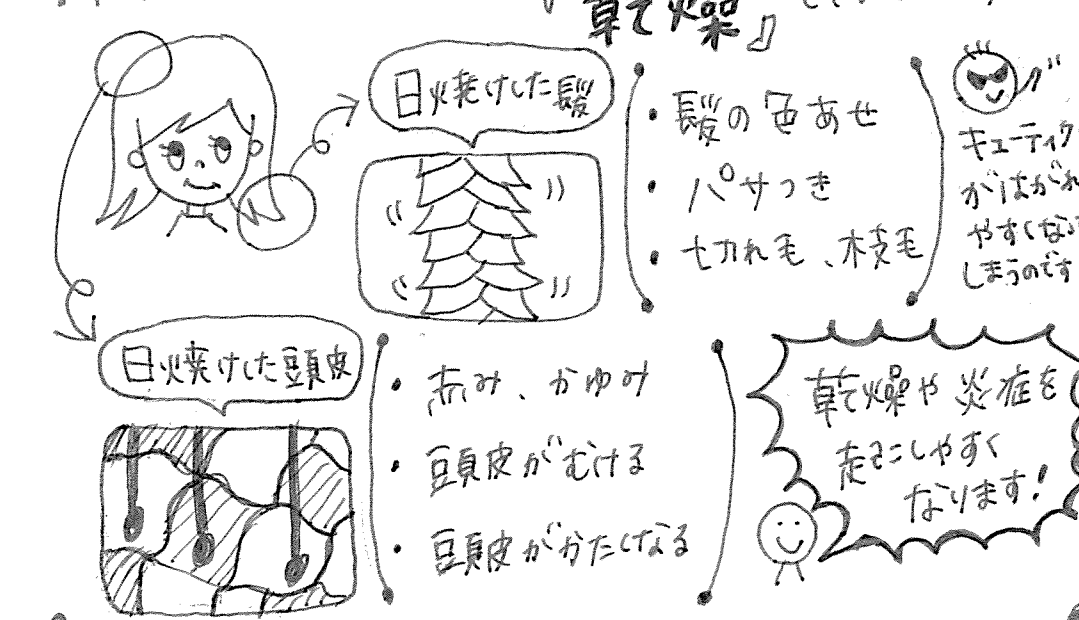 乾燥』
日焼けした髪
・髪の色あせ
・パサつき
・切れ毛、枝毛
キューティク
がはがれ
やすくなっ
しまうのです
日焼けした頭皮
・赤み、かゆみ
・頭皮がむける
・頭皮がかたくなる
乾燥や炎症を
起こしやすく
なります！